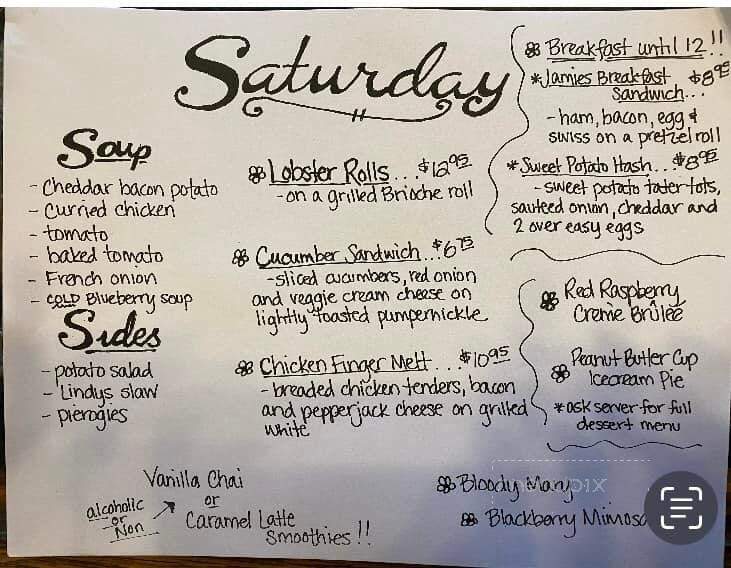 Saturday
Soup
- Cheddar bacon potato
- Curried chicken
- tomato
- baked tomato
- French onion
- COLD Blueberry soup
Sides
- potato salad
- Lindys slaw
- pierogies
Lobster Rolls...$12.95
- on a grilled Brioche roll
Cucumber Sandwich...$6.75
- sliced cucumbers, red onion
and veggie cream cheese on
lightly toasted pumpernickle
Chicken Finger Melt...$10.95
- breaded chicken tenders, bacon
and pepperjack cheese on grilled
white
Breakfast until 12!!
*Jamies Breakfast $8.95
Sandwich...
- ham, bacon, egg &
swiss on a pretzel roll
*Sweet Potato Hash...$8.95
- sweet potato tater-tots,
sauteed onion, cheddar and
2 over easy eggs
Red Raspberry
Creme Brûlée
Peanut Butter Cup
Icecream Pie
*ask server for full
dessert menu
alcoholic
or
Non
Vanilla Chai
or
Caramel Latte
Smoothies!!
Bloody Mary
Blackberry Mimosa